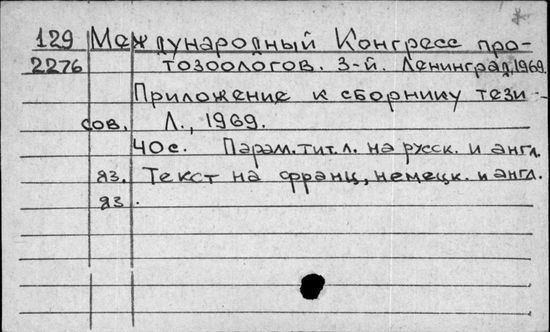 129 Международный Конгресс про-
2276 тозоологов. 3-й. Ленинград, 1969.
Приложение к сборнику тези-
сов. Л., 1969.
40с. Парал. тит. л. на русск. и англ.
яз. Текст на франц., немецк. и англ.
яз.